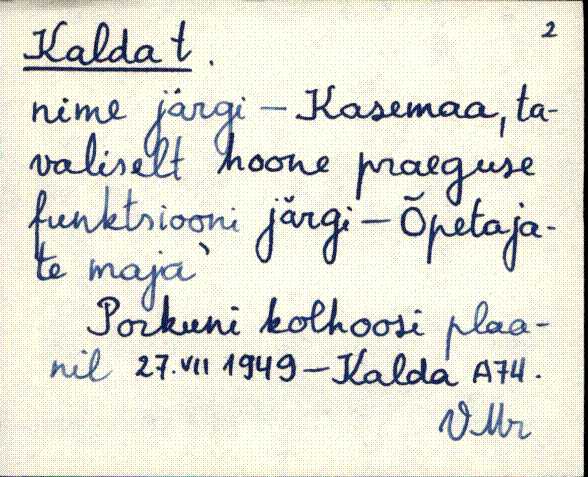 2
Kalda t.
nime järgi – Kasemaa, ta-
valiselt hoone praeguse
funktsiooni järgi – Õpetaja-
te maja`
Porkuni kolhoosi plaa-
nil 27.VII 1949 – Kalda A74.
VMr